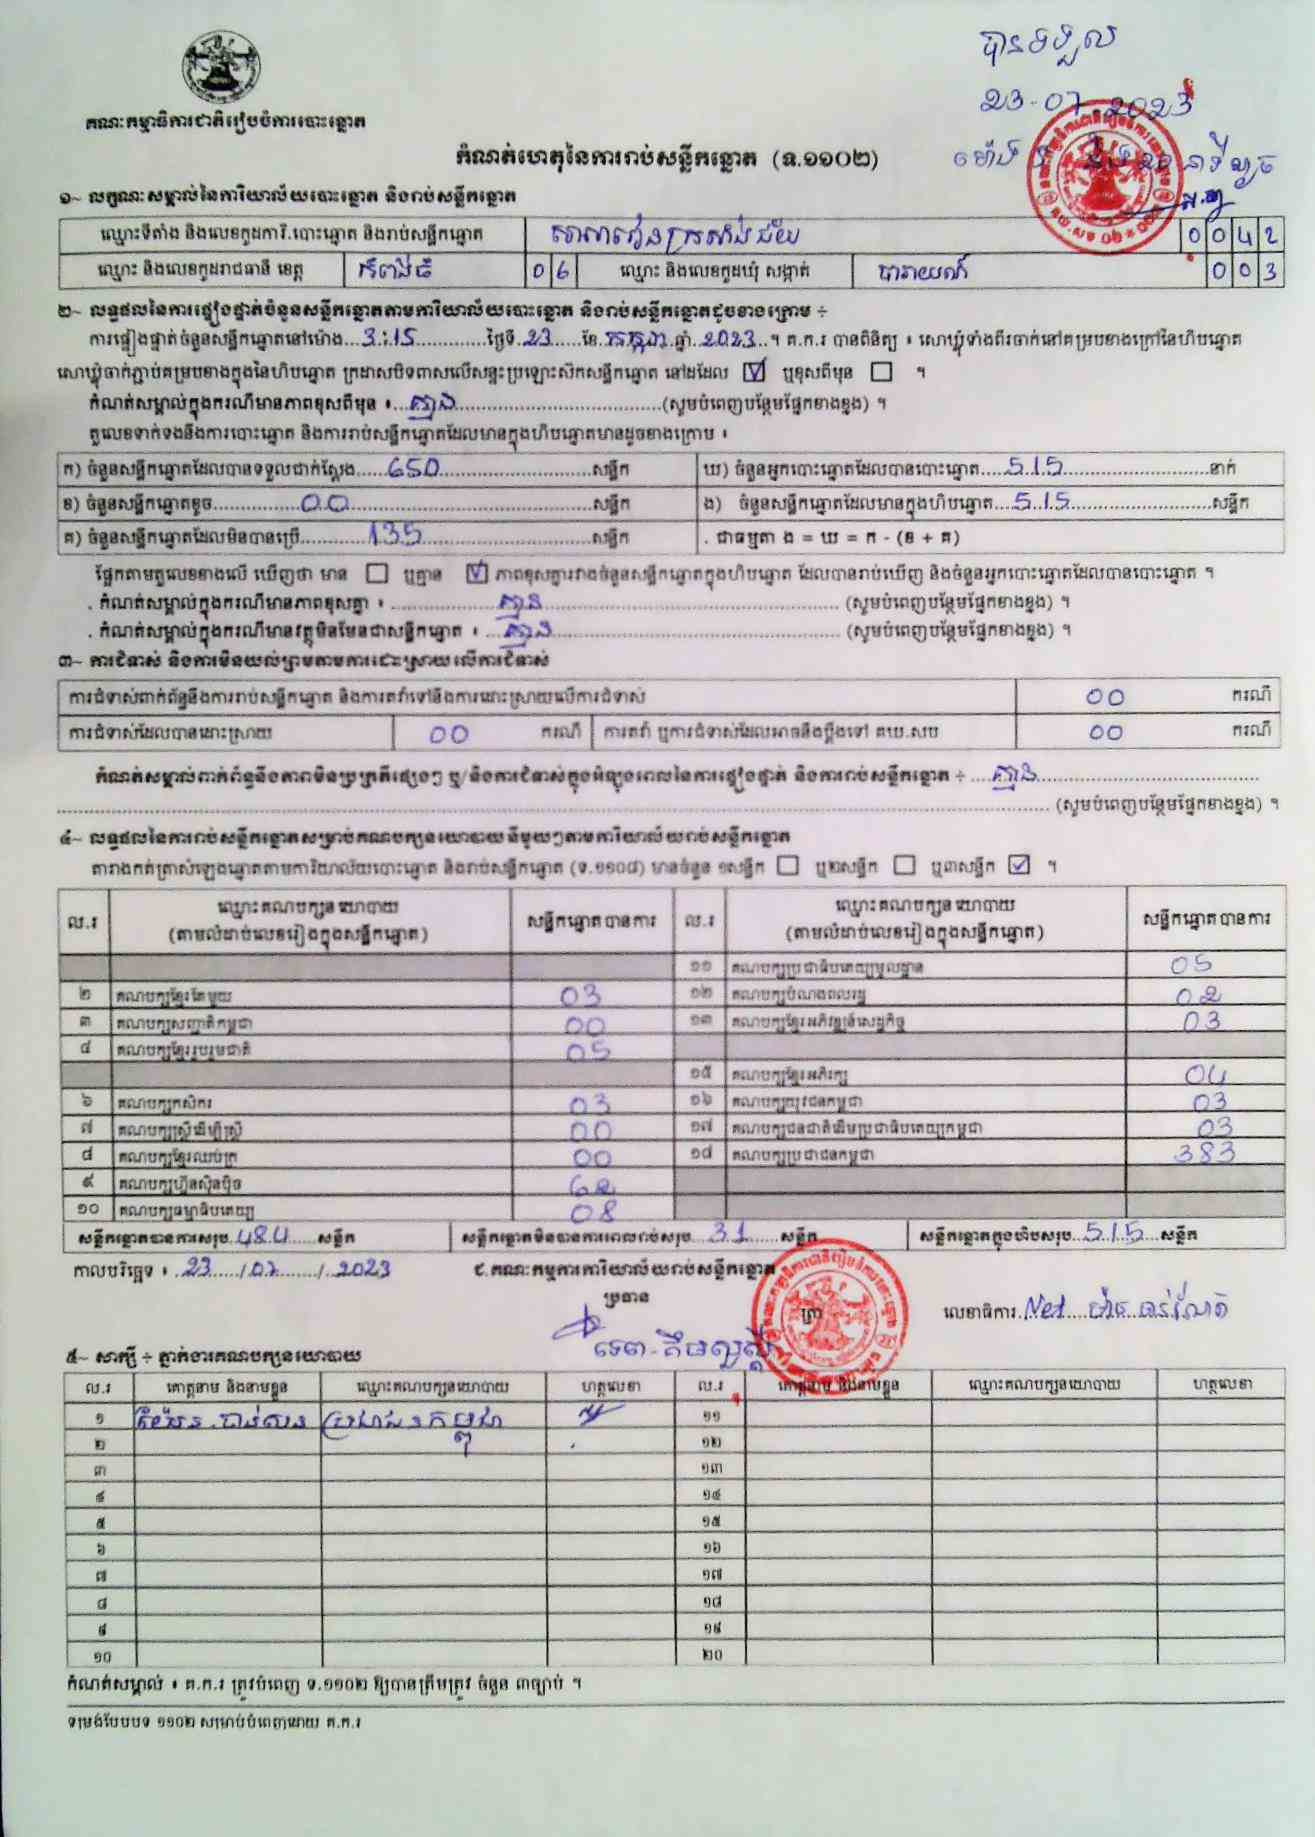 បានទទួល
23-07-2023
គណៈកម្មាធិការជាតិរៀបចំការបោះឆ្នោត
កំណត់ហេតុនៃការរាប់សន្លឹកឆ្នោត (ទ.១១០២)
១~ លក្ខណៈសម្គាល់នៃការិយាល័យបោះឆ្នោត និងរាប់សន្លឹកឆ្នោត
ឈ្មោះទីតាំង និងលេខកូដការិ.បោះឆ្នោត និងរាប់សន្លឹកឆ្នោត សាលារៀនក្រសាំងជ័យ 0042
ឈ្មោះ និងលេខកូដរាជធានី ខេត្ត កំពង់ធំ 06 ឈ្មោះ និងលេខកូដឃុំ សង្កាត់ បារាយណ៍ 003
២~ លទ្ធផលនៃការផ្ទៀងផ្ទាត់ចំនួនសន្លឹកឆ្នោតតាមការិយាល័យបោះឆ្នោត និងរាប់សន្លឹកឆ្នោតដូចខាងក្រោម ÷
ការផ្ទៀងផ្ទាត់ចំនួនសន្លឹកឆ្នោតនៅម៉ោង 3:15 ថ្ងៃទី 23 ខែ កក្កដា ឆ្នាំ 2023 ។ គ.ក.រ បានពិនិត្យ ៖ សោឃ្លុំទាំងពីរចាក់នៅគម្របខាងក្រៅនៃហិបឆ្នោត
សោឃ្លុំចាក់ភ្ជាប់គម្របខាងក្នុងនៃហិបឆ្នោត ក្រដាសបិទពាសលើសន្ទះប្រឡោះស៊កសន្លឹកឆ្នោត នៅដដែល ☑ ឬខុសពីមុន ☐ ។
កំណត់សម្គាល់ក្នុងករណីមានភាពខុសពីមុន ៖ គ្មាន (សូមបំពេញបន្ថែមផ្នែកខាងខ្នង) ។
តួលេខទាក់ទងនឹងការបោះឆ្នោត និងការរាប់សន្លឹកឆ្នោតដែលមានក្នុងហិបឆ្នោតមានដូចខាងក្រោម ៖
ក) ចំនួនសន្លឹកឆ្នោតដែលបានទទួលជាក់ស្តែង 650 សន្លឹក ឃ) ចំនួនអ្នកបោះឆ្នោតដែលបានបោះឆ្នោត 515 នាក់
ខ) ចំនួនសន្លឹកឆ្នោតខូច 00 សន្លឹក ង) ចំនួនសន្លឹកឆ្នោតដែលមានក្នុងហិបឆ្នោត 515 សន្លឹក
គ) ចំនួនសន្លឹកឆ្នោតដែលមិនបានប្រើ 135 សន្លឹក . ជាធម្មតា ង = ឃ = ក - (ខ + គ)
ផ្អែកតាមតួលេខខាងលើ ឃើញថា មាន ☐ ឬគ្មាន ☑ ភាពខុសគ្នារវាងចំនួនសន្លឹកឆ្នោតក្នុងហិបឆ្នោត ដែលបានរាប់ឃើញ និងចំនួនអ្នកបោះឆ្នោតដែលបានបោះឆ្នោត ។
. កំណត់សម្គាល់ក្នុងករណីមានភាពខុសគ្នា ៖ គ្មាន (សូមបំពេញបន្ថែមផ្នែកខាងខ្នង) ។
. កំណត់សម្គាល់ក្នុងករណីមានវត្ថុមិនមែនជាសន្លឹកឆ្នោត ៖ គ្មាន (សូមបំពេញបន្ថែមផ្នែកខាងខ្នង) ។
៣~ ការជំទាស់ និងការមិនយល់ព្រមតាមការដោះស្រាយលើការជំទាស់
ការជំទាស់ពាក់ព័ន្ធនឹងការរាប់សន្លឹកឆ្នោត និងការតវ៉ាទៅនឹងការដោះស្រាយលើការជំទាស់ 00 ករណី
ការជំទាស់ដែលបានដោះស្រាយ 00 ករណី ការតវ៉ា ឬការជំទាស់ដែលអាចនឹងប្តឹងទៅ គឃ.សប 00 ករណី
កំណត់សម្គាល់ពាក់ព័ន្ធនឹងភាពមិនប្រក្រតីផ្សេងៗ ឬ/និងការជំទាស់ក្នុងអំឡុងពេលនៃការផ្ទៀងផ្ទាត់ និងការរាប់សន្លឹកឆ្នោត ÷ គ្មាន
(សូមបំពេញបន្ថែមផ្នែកខាងខ្នង) ។
៤~ លទ្ធផលនៃការរាប់សន្លឹកឆ្នោតសម្រាប់គណបក្សនយោបាយនីមួយៗតាមការិយាល័យរាប់សន្លឹកឆ្នោត
តារាងកត់ត្រាសំឡេងឆ្នោតតាមការិយាល័យបោះឆ្នោត និងរាប់សន្លឹកឆ្នោត (ទ.១១០៨) មានចំនួន ១សន្លឹក ☐ ឬ២សន្លឹក ☐ ឬ៣សន្លឹក ☑ ។
ល.រ ឈ្មោះគណបក្សនយោបាយ (តាមលំដាប់លេខរៀងក្នុងសន្លឹកឆ្នោត) សន្លឹកឆ្នោតបានការ ល.រ ឈ្មោះគណបក្សនយោបាយ (តាមលំដាប់លេខរៀងក្នុងសន្លឹកឆ្នោត) សន្លឹកឆ្នោតបានការ
១១ គណបក្សប្រជាធិបតេយ្យមូលដ្ឋាន 05
២ គណបក្សខ្មែរតែមួយ 03 ១២ គណបក្សបំណងពលរដ្ឋ 02
៣ គណបក្សសញ្ជាតិកម្ពុជា 00 ១៣ គណបក្សខ្មែរអភិវឌ្ឍន៍សេដ្ឋកិច្ច 03
៤ គណបក្សខ្មែររួបរួមជាតិ 05
១៥ គណបក្សខ្មែរអភិរក្ស 04
៦ គណបក្សកសិករ 03 ១៦ គណបក្សយុវជនកម្ពុជា 03
៧ គណបក្សស្ត្រីដើម្បីស្ត្រី 00 ១៧ គណបក្សជនជាតិដើមប្រជាធិបតេយ្យកម្ពុជា 03
៨ គណបក្សខ្មែរឈប់ក្រ 00 ១៨ គណបក្សប្រជាជនកម្ពុជា 383
៩ គណបក្សហ៊្វុនស៊ិនប៉ិច 62
១០ គណបក្សធម្មាធិបតេយ្យ 08
សន្លឹកឆ្នោតបានការសរុប 484 សន្លឹក សន្លឹកឆ្នោតមិនបានការពេលរាប់សរុប 31 សន្លឹក សន្លឹកឆ្នោតក្នុងហិបសរុប 515 សន្លឹក
កាលបរិច្ឆេទ ៖ 23/07/2023 ជ.គណៈកម្មការការិយាល័យរាប់សន្លឹកឆ្នោត
ប្រធាន ត្រា លេខាធិការ
៥~ សាក្សី ÷ ភ្នាក់ងារគណបក្សនយោបាយ
ល.រ គោត្តនាម និងនាមខ្លួន ឈ្មោះគណបក្សនយោបាយ ហត្ថលេខា ល.រ គោត្តនាម និងនាមខ្លួន ឈ្មោះគណបក្សនយោបាយ ហត្ថលេខា
១ ប្រជាជនកម្ពុជា ១១
២ ១២
៣ ១៣
៤ ១៤
៥ ១៥
៦ ១៦
៧ ១៧
៨ ១៨
៩ ១៩
១០ ២០
កំណត់សម្គាល់ ៖ គ.ក.រ ត្រូវបំពេញ ទ.១១០២ ឱ្យបានត្រឹមត្រូវ ចំនួន ៣ច្បាប់ ។
ទម្រង់បែបបទ ១១០២ សម្រាប់បំពេញដោយ គ.ក.រ